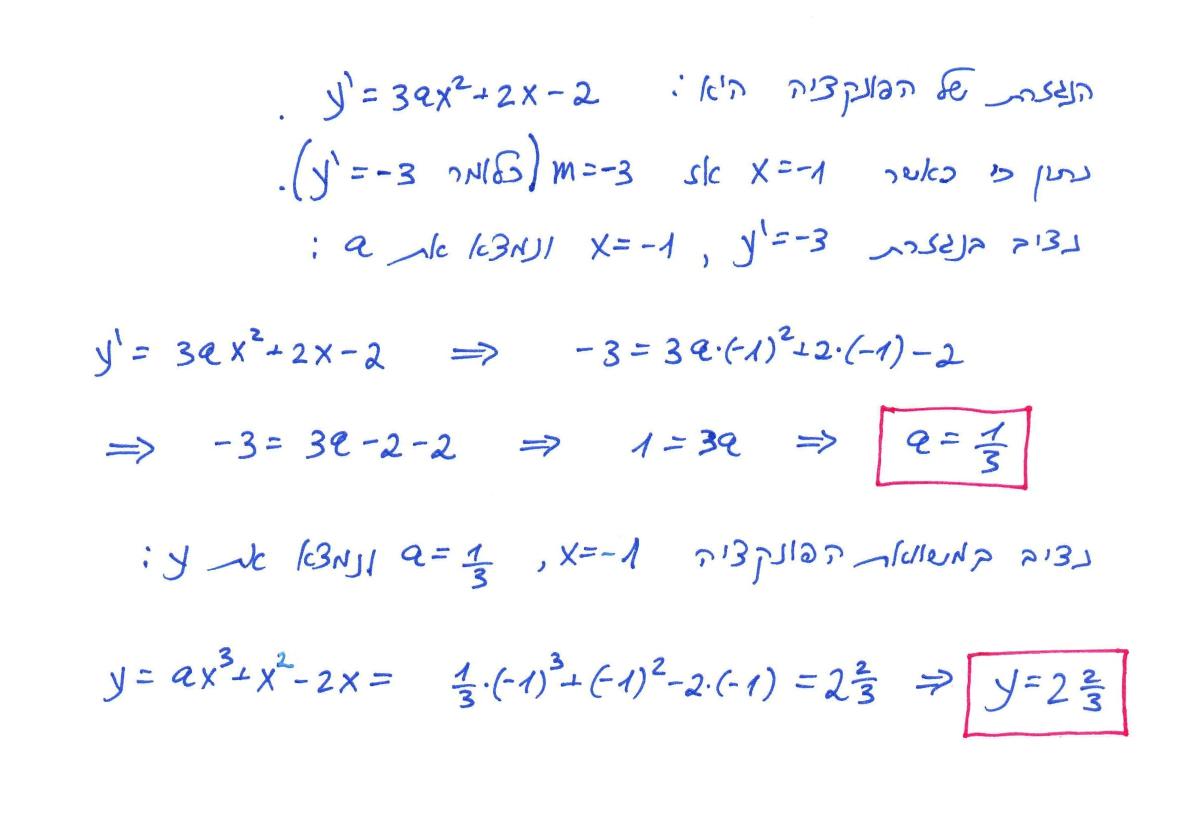 הנגזרת של הפונקציה היא: y' = 3ax² + 2x - 2 .
נתון כי כאשר x = -1 אז m = -3 (כלומר y' = -3).
נציב בנגזרת y' = -3 , x = -1 ונמצא את a :
y' = 3ax² + 2x - 2 ⇒ -3 = 3a·(-1)² + 2·(-1) - 2
⇒ -3 = 3a - 2 - 2 ⇒ 1 = 3a ⇒ a = 1/3
נציב במשוואת הפונקציה x = -1 , a = 1/3 ונמצא את y :
y = ax³ + x² - 2x = 1/3·(-1)³ + (-1)² - 2·(-1) = 2 2/3 ⇒ y = 2 2/3